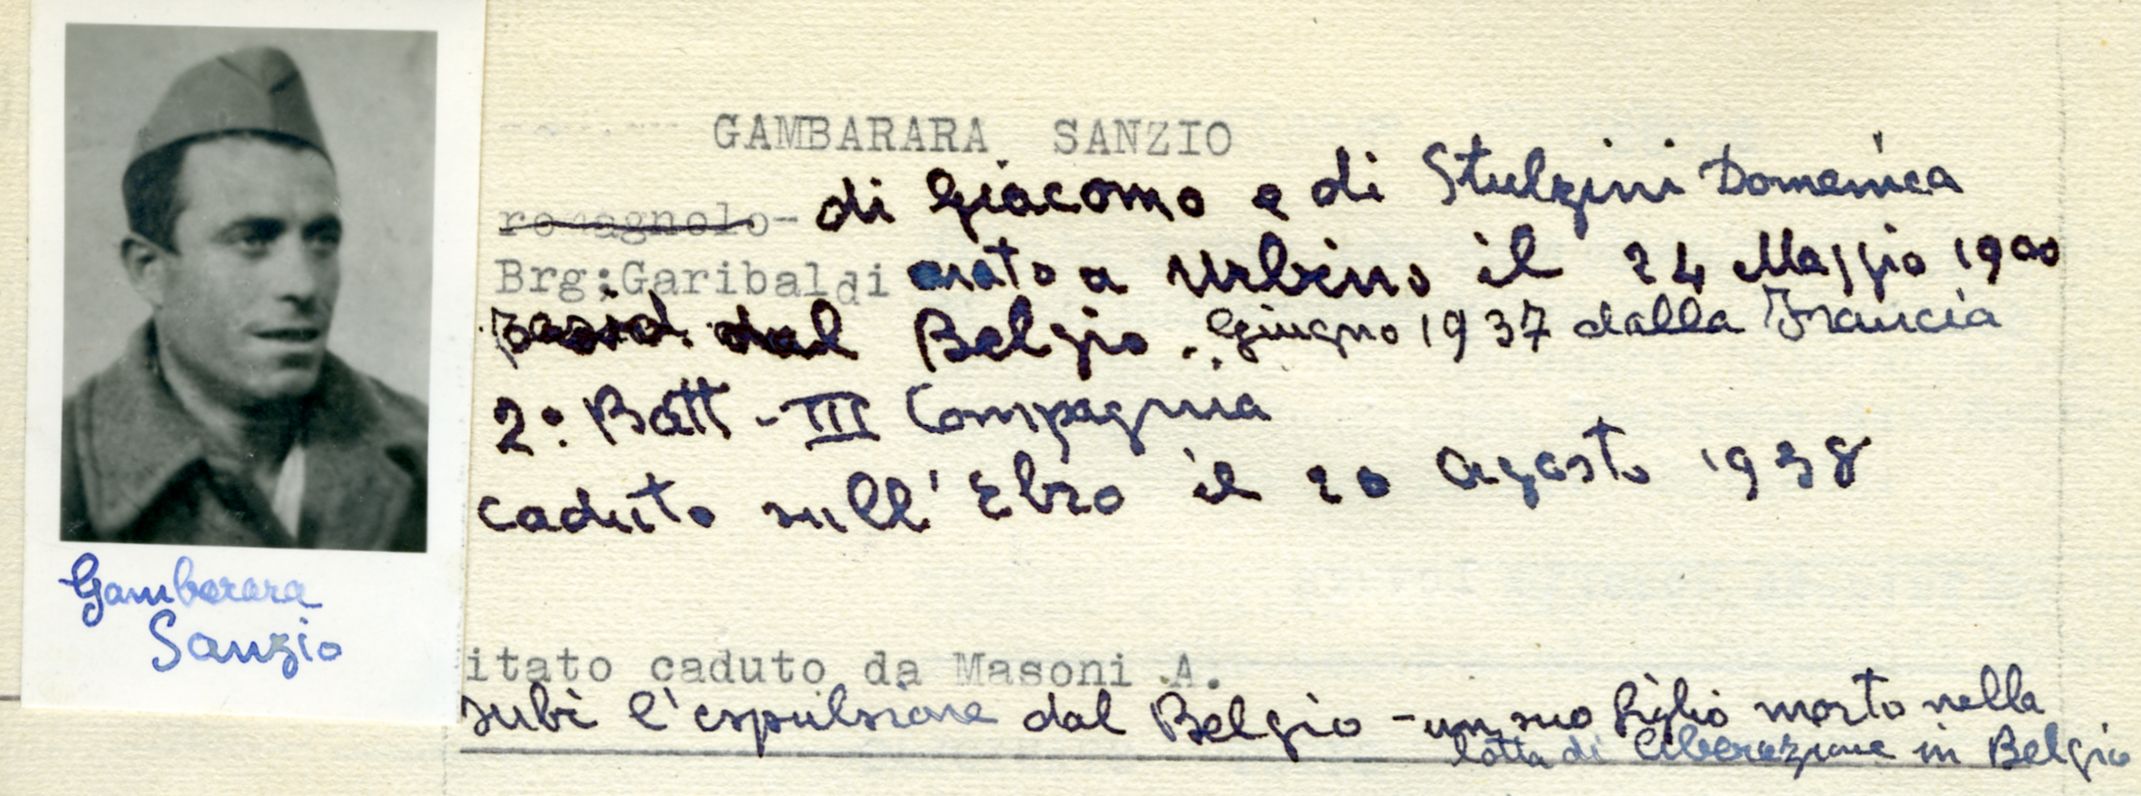 GAMBARARA SANZIO
romagnolo- di Giacomo e di Stulzini Domenica
Brg:Garibaldi nato a Urbino il 24 Maggio 1900
dal Belgio. Giugno 1937 dalla Francia
2: Batt - III Compagnia
caduto sull'Ebro il 20 Agosto 1938
Gambarara
Sanzio
itato caduto da Masoni A.
subì l'espulsione dal Belgio - un suo figlio morto nella
lotta di liberazione in Belgio